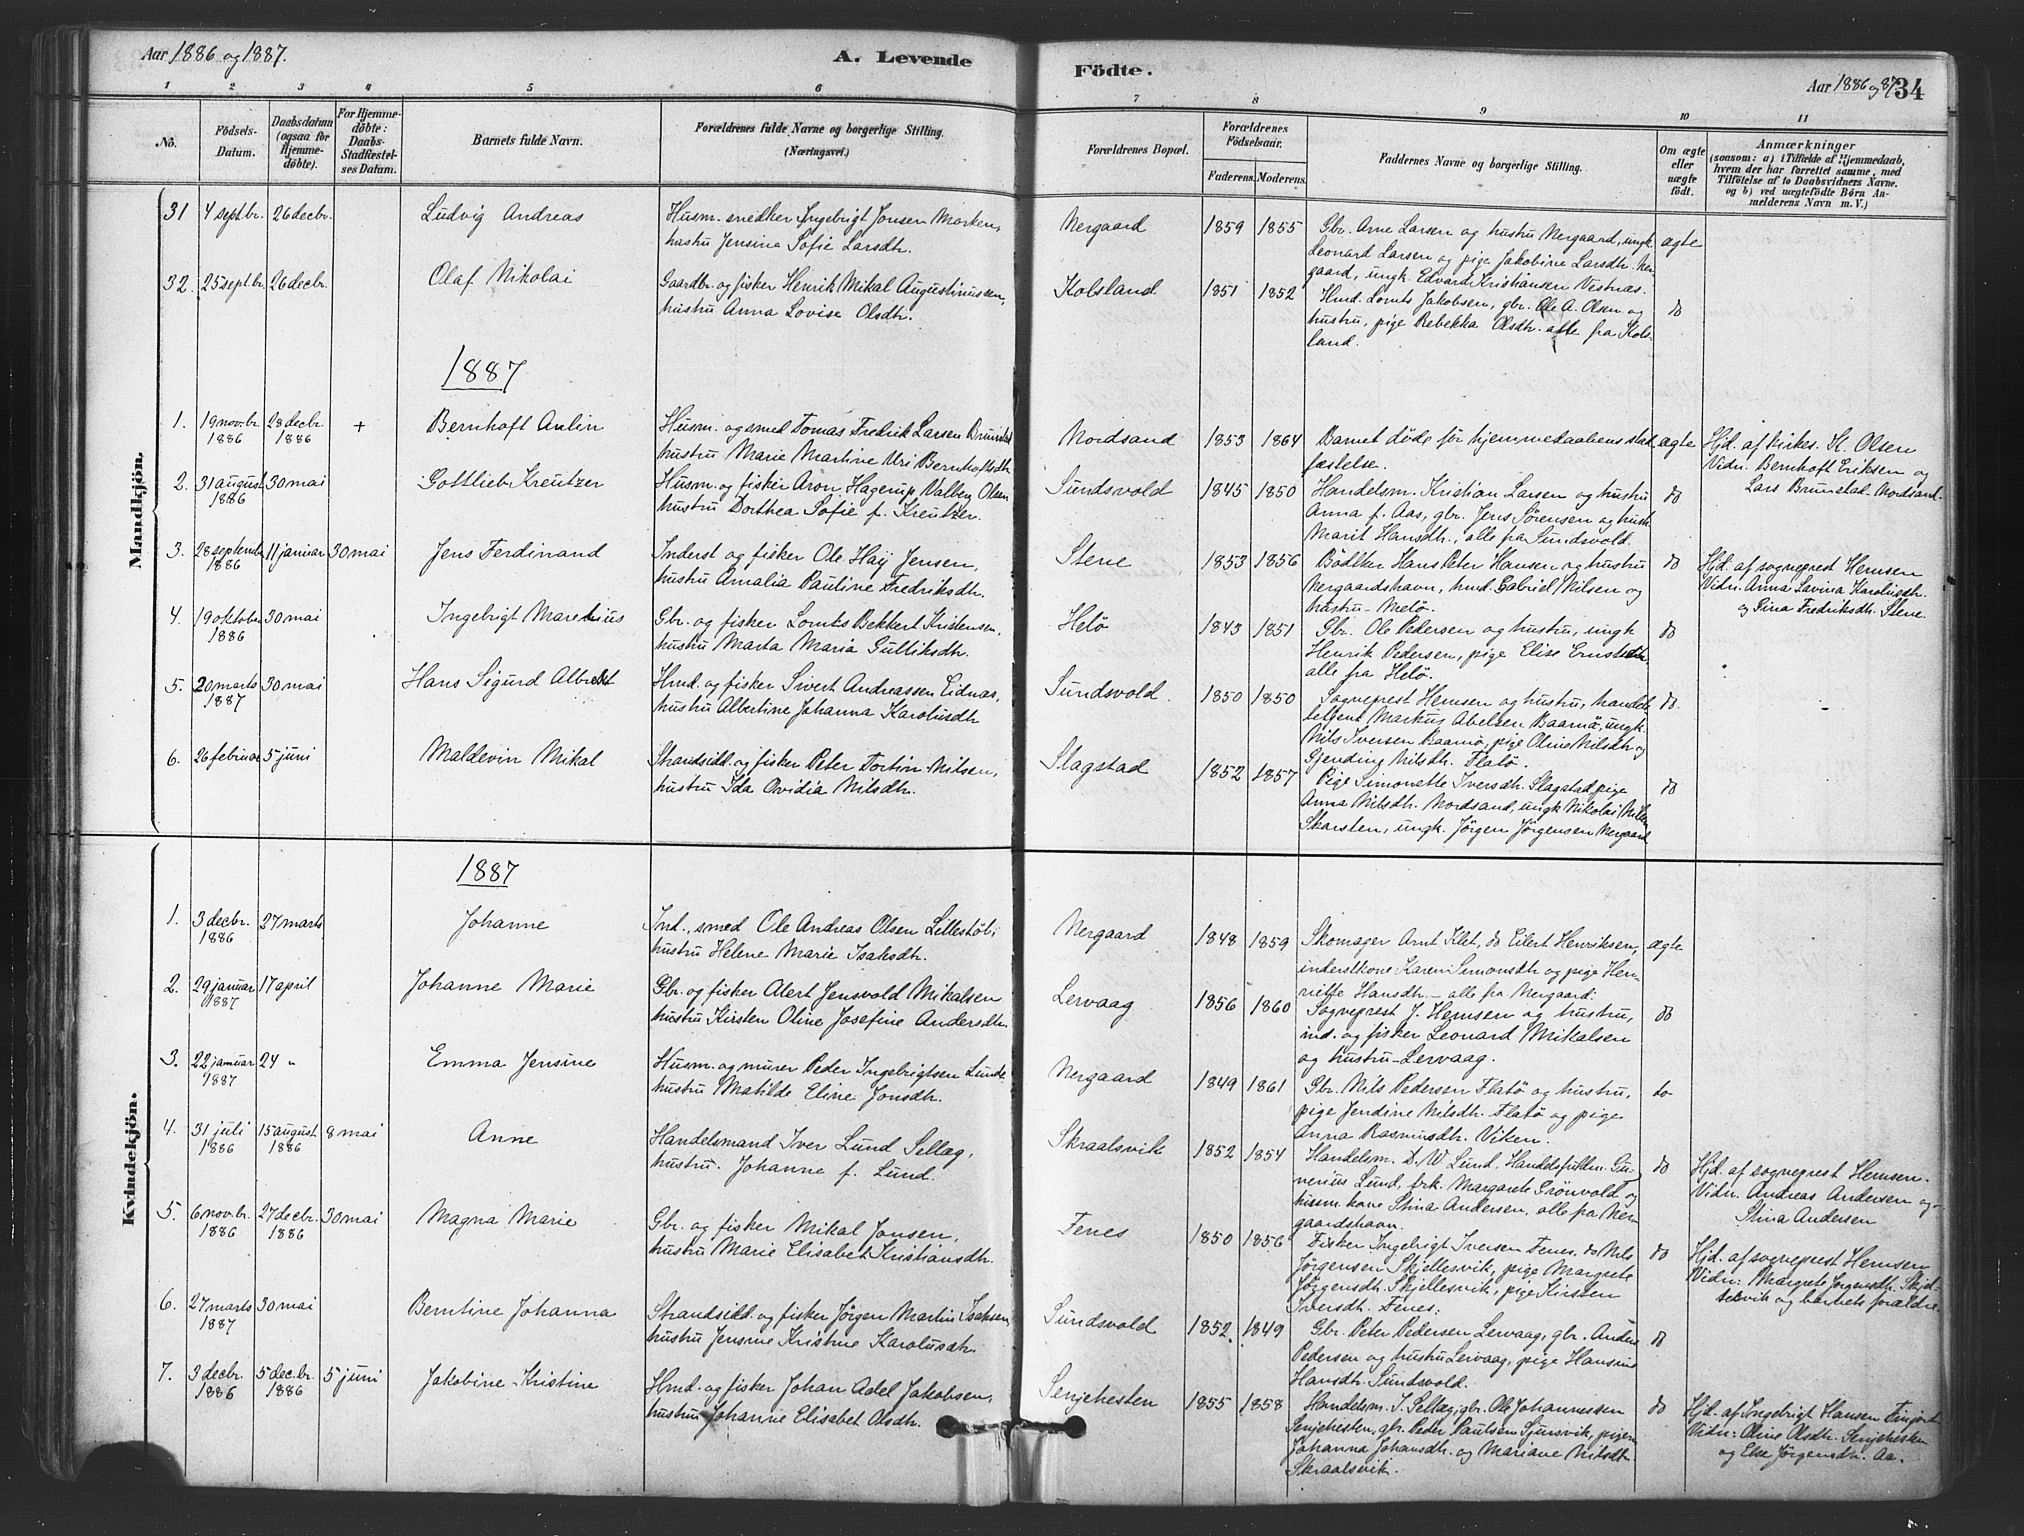 Aar 1886 og 1887.
A. Levende
Födte.
Aar 1886 og 87
34
1 2 3 4 5 6 7 8 9 10 11
No.
Födsels-Datum.
Daabsdatum (ogsaa for Hjemmedöbte).
For Hjemmedöbte: Daabs-Stadfæstelses Datum.
Barnets fulde Navn.
Forældrenes fulde Navne og borgerlige Stilling. (Næringsvei.)
Forældrenes Bopæl.
Forældrenes Födselsaar.
Faderens. Moderens.
Faddernes Navne og borgerlige Stilling.
Om ægte eller uægte födt.
Anmærkninger
(saasom: a) i Tilfælde af Hjemmedaab, hvem der har forrettet samme, med Tilföielse af to Daabsvidners Navne. og b) ved uægtefödte Börn Anmelderens Navn m. V.)
Mandkjön.
31 4 septbr. 26 decbr. Ludvig Andreas
Husm. snedker Ingebrigt Jonsen Morken,
hustru Jensine Sofie Larsdtr.
Nergaard 1859 1855
Gbr. Arne Larsen og hustru Nergaard, ungk.
Leonard Larsen og pige Jakobine Larsdtr. Ner-
gaard, ungk. Edvard Kristiansen Vestnæs.
ægte
32. 25 septbr. 26 decbr. Olaf Nikolai
Gaardbr. og fisker Henrik Mikal Augustinussen,
hustru Anna Lovise Olsdtr.
Kolsland 1851 1852
Hmd. Lornts Jakobsen, gbr. Ole A. Olsen og
hustru, pige Rebekka Olsdtr. alle fra Kols-
land.
do
1887
1. 19 novbr. 1886 28 decbr. 1886 + Bernhoft Anlin
Husm. og smed Tomas Fredrik Larsen Brunstad
hustru Marie Martine Uri Bernhoftsdtr.
Nordsand 1853 1864
Barnet døde før hjemmedaabens stad-
fæstelse.
ægte
Hjd. af kirkes. K. Olsen
Vidn. Bernhoft Eriksen og
Lars Brunstad - Nordsand.
2. 31 august 1886 30 mai Gottlieb Kreutzer
Husm. og fisker Aron Hagerup Valberg Olsen
hustru Dorthea Sofie f. Kreutzer.
Sundsvold 1845 1850
Handelsm. Kristian Larsen og hustru
Anna f. Aas, gbr. Jens Sørensen og hust.
Marit Hansdtr., alle fra Sundsvold.
do
3. 28 septembr 1886 11 januar 30 mai Jens Ferdinand
Inderst og fisker Ole Høij Jensen,
hustru Amalia Pauline Fredriksdtr.
Stene 1853 1856
Bødker Hans Peter Hansen og hustru
Nergaardshavn, hmd. Gabriel Nilsen og
hustru - Melø.
do
Hjd. af sogneprest Hemsen
Vidn. Anna Lavina Karolusdtr.
og Tina Fredriksdtr. Stene.
4. 19 oktober 1886 30 mai Ingebrigt Maredius
Gbr. og fisker Lornts Bekkert Kristensen,
hustru Marta Maria Gulliksdtr.
Helø 1843 1851
Gbr. Ole Pedersen og hustru, ungk.
Henrik Pedersen, pige Elise Ernstsdtr.
alle fra Helø.
do
5. 20 marts 1887 30 mai Hans Sigurd Albrekt
Hmd. og fisker Sivert Andreassen Eidnæs,
hustru Albertine Johanna Karolusdtr.
Sundsvold 1850 1850
Sogneprest Hemsen og hustru, handels-
betjent Markus Abelsen Baarnø, ungk.
Nils Iversen Baarnø, pige Oline Nilsdtr. og
Gjendine Nilsdtr. Flatø.
do
6. 26 februar 5 juni Maldevin Mikal
Strandsidd. og fisker Peter Tortin Nilsen,
hustru Ida Ovidia Nilsdtr.
Slagstad 1852 1857
Pige Simonette Iversdtr. Slagstad, pige
Anna Nilsdtr. Nordsand, ungk. Nikolai Nilsen
Skarsten, ungk. Jørgen Jørgensen Nergaard
do
Kvindekjön.
1887
1. 3 decbr. 1886 27 marts Johanne
Ind., smed Ole Andreas Olsen Lillestøl,
hustru Helene Marie Isaksdtr.
Nergaard 1848 1859
Skomager Arnt Klet, do Eilert Henriksen,
inderstkone Karen Simonsdtr og pige Hen-
riette Hansdtr. - alle fra Nergaard.
ægte
2. 29 januar 1887 17 april Johanne Marie
Gbr. og fisker Alert Jensvold Mikalsen
hustru Kirsten Oline Josefine Andersdtr.
Lervaag 1856 1860
Sogneprest J. Hemsen og hustru,
ind. og fisker Leonard Mikalsen
og hustru - Lervaag.
do
3. 22 januar 1887 24 " Emma Jensine
Husm. og murer Peder Ingebrigtsen Lunde
hustru Matilde Eline Jonsdtr.
Nergaard 1849 1861
Gbr. Nils Pedersen Flatø og hustru,
pige Jendine Nilsdtr. Flatø og pige
Anna Rasmusdtr. Viken.
do
4. 31 juli 1886 15 august 1886 8 mai Anne
Handelsmand Iver Lund Sellæg,
hustru Johanne f. Lund.
Skraalsvik 1852 1854
Handelsm. D. W. Lund, Handelsfuldm. Gu-
nerius Lund, frk. Margarete Grønvold og
husm. kone Stina Andersen, alle fra Ner-
gaardshavn.
do
Hjd. af sogneprest Hemsen.
Vidn. Andreas Andersen og
Stina Andersen
5. 6 novbr. 1886 27 decbr. 1886 30 mai Magna Marie
Gbr. og fisker Mikal Jonsen,
hustru Marie Elisabet Kristiansdtr.
Fenes 1850 1856
Fisker Ingebrigt Iversen Fenes, do Nils
Jørgensen Skjellesvik, pige Margrete
Jørgensdtr. Skjellesvik, pige Kirsten
Iversdtr. Fenes.
do
Hjd. af sogneprest Hemsen
Vidn: Margrete Jørgensdtr. Skjel-
lesvik og barnets forældre.
6. 27 marts 1887 30 mai Berntine Johanna
Strandsidd. og fisker Jørgen Martin Isaksen,
hustru Jensine Kristine Karolusdtr.
Sundsvold 1852. 1849
Gbr. Peter Pedersen Lervaag, gbr. Anders
Pedersen og hustru Lervaag, pige Hansine
Hansdtr. Sundsvold.
do
7. 3 decbr. 1886 5 decbr. 1886 5 juni Jakobine Kristine
Hmd. og fisker Johan Adel Jakobsen,
hustru Johanne Elisabet Olsdtr.
Senjehesten 1855 1858
Handelsm. I. Sellæg, gbr. Ole Johannessen
Senjehesten, gbr. Peder Paulsen Sjursvik, pigerne
Johanna Johansdtr. og Mariane Nilsdtr.
Skraalsvik.
do
Hjd. af Ingebrigt Hansen Finjord
Vidn: Oline Olsdtr. Senjehesten
og Else Jørgensdtr. Aa.